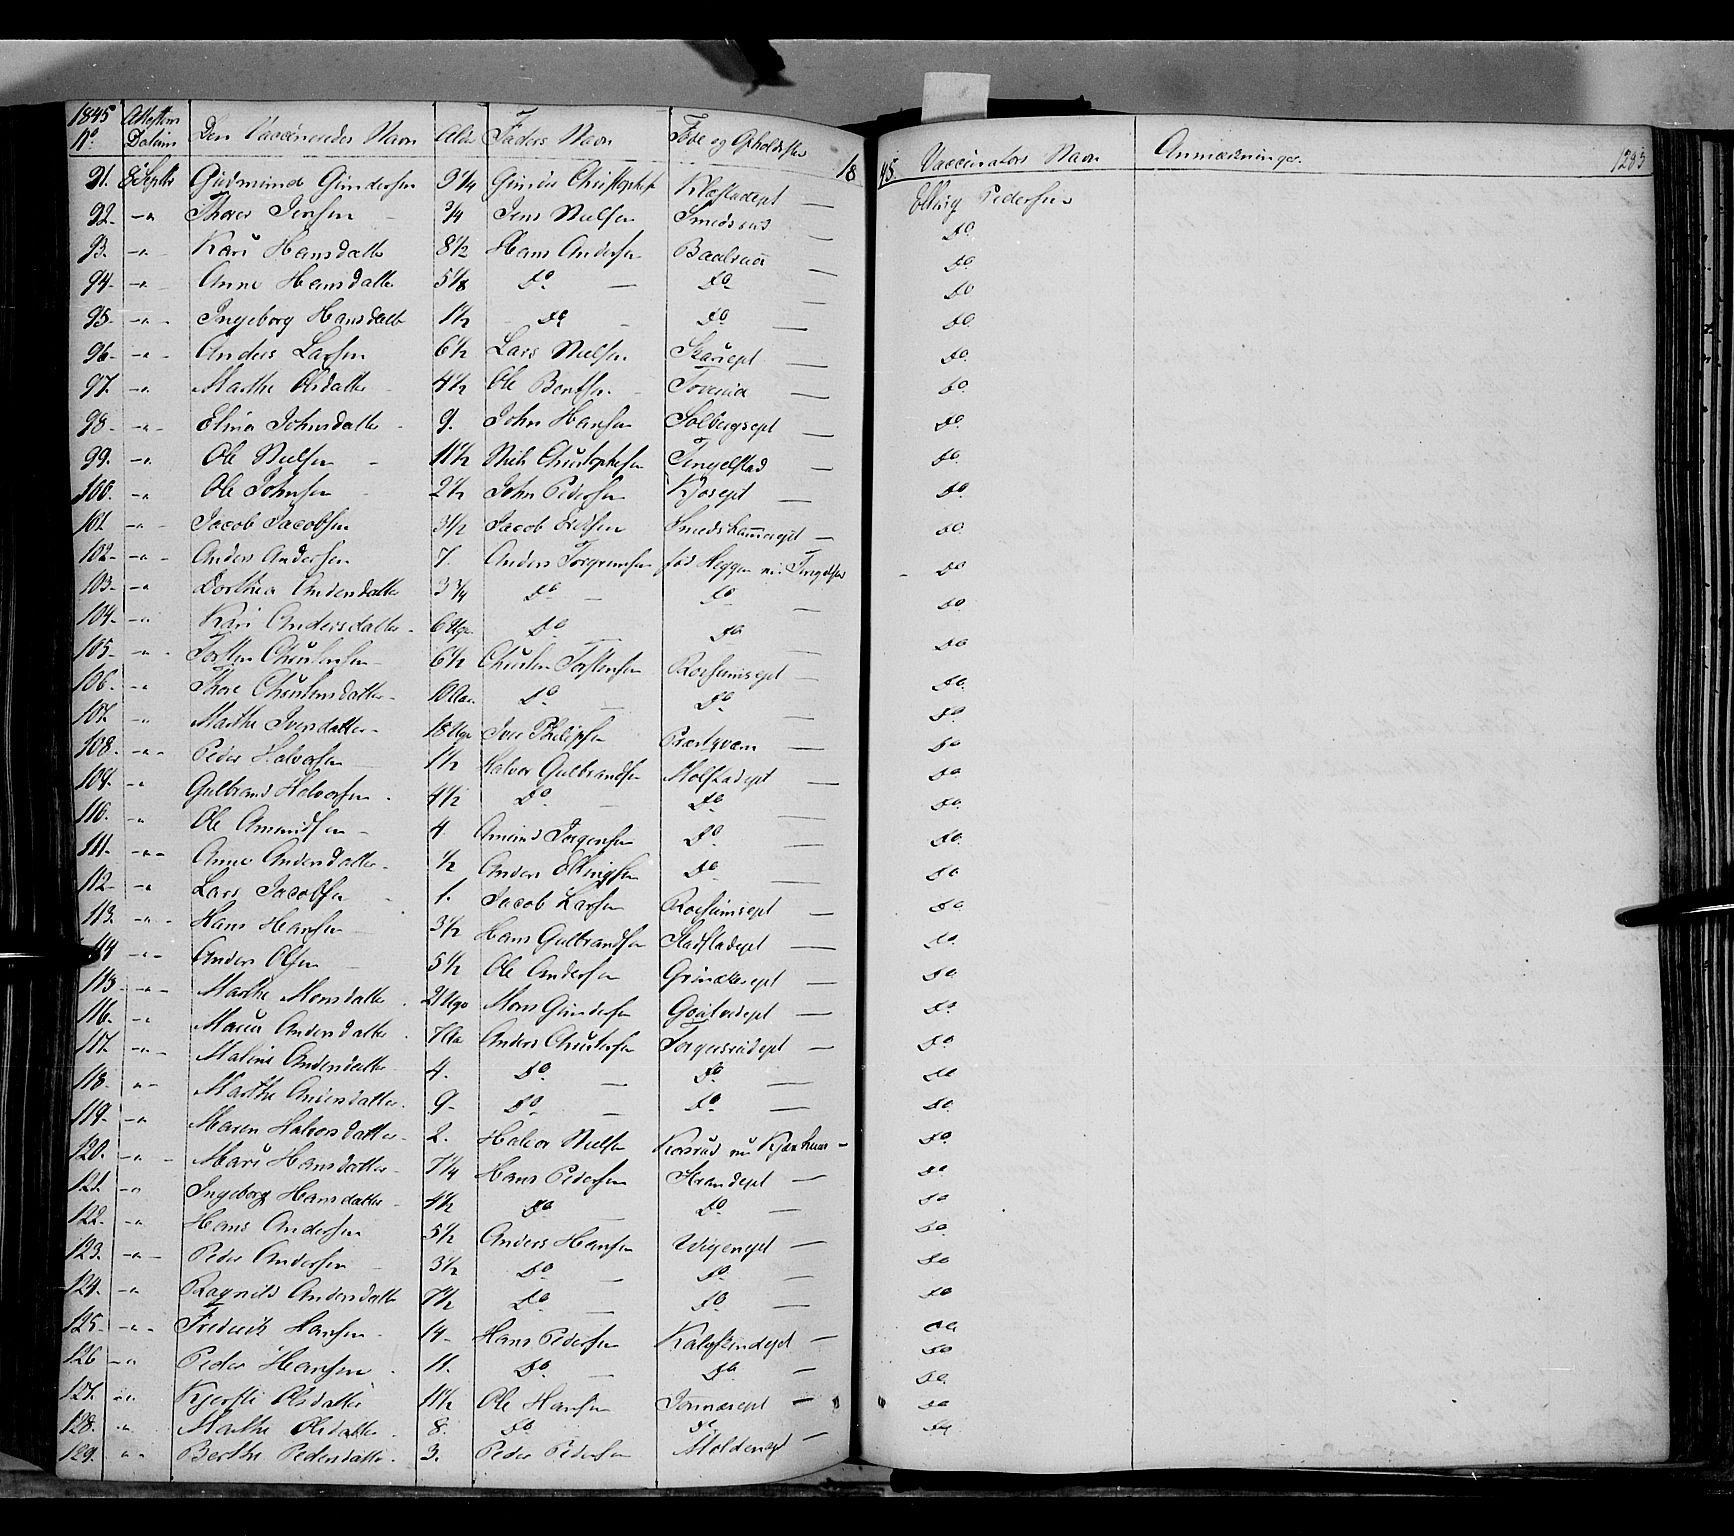 1845 Attestens Den Vaccineredes Navn Alder Faders Navn Føde og Opholdssted 18 45 Vaccinators Navn Anmærkninger 1283
No. Datum
91. 8 Septbr Gudmund Gundersen 9 1/4 Gunder Christophers. Klæstadept — Elling Pedersen
92. -"- Thorer Jensen 3/4 Jens Nielsen Smedsrud — Do
93. -"- Kari Hansdatter 8 1/2 Hans Andersen — Do
94. -"- Anne Hansdatter 5 1/8 Do — Do — Do
95. -"- Ingeborg Hansdatt 1 1/2 Do — Do — Do
96. -"- Anders Larsen 6 1/2 Lars Nielsen — Do
97. -"- Marthe Olsdatter 4 1/2 Ole Bentsen — Do
98. -"- Elina Johnsdatter 9. John Hansen Solbergsept — Do
99. -"- Ole Nielsen 11 1/2 Niels Christophersen Tingelstad — Do
100. -"- Ole Johnsen 2 1/2 John Pedersen Kjosept — Do
101. -"- Jacob Jacobsen 3 1/2 Jacob Ericksen Smedshammerept — Do
102. -"- Anders Andersen 7. Anders Torgrimsen fød Heggen nu Tingelstad — Do
103. -"- Dorthea Andersdatter 3 3/4 Do — Do — Do
104. -"- Kari Andersdatter 6 Uger Do Do Do
105. -"- Torsten Christensen 6 1/2 Christen Torstensen Roesumsept — Do
106. -"- Thore Christensdatter 10 Do — Do — Do
107. -"- Marthe Iversdatter 18 Uger Iver Philipsen Præstqvern — Do
108. -"- Peder Halvorsen 1 1/2 Halvor Gulbrandsen Molstadept — Do
109. -"- Gulbrand Halvorsen 4 1/2 Do — Do — Do
110. -"- Ole Amundsen 4. Amund Jorgensen Do — Do
111. -"- Anne Andersdatter 1/2 Anders Ellingsen Do — Do
112. -"- Lars Jacobsen 1. Jacob Larsen Roesumsept — Do
113. -"- Hans Hansen 3 1/2 Hans Gulbrandsen Stadstadept — Do
114 -"- Anders Olsen 5 1/2 Ole Andersen Grinakerept — Do
115. -"- Marthe Monsdatter 21 Uger Mons Gundersen — Do
116. -"- Maria Andersdatter 7 Anders Christensen Torgersrudept — Do
117. -"- Maline Andersdatter 4. Do — Do — Do
118. -"- Marthe Andersdatter 9. Do — Do — Do
119. -"- Maren Halvorsdatter 2. Halvor Nielsen Korsrud nu — Do
120. -"- Mari Hansdatter 7 1/4 Hans Pedersen Strandept — Do
121. -"- Ingeborg Hansdatter 4 1/2 Do — Do — Do
122. -"- Hans Andersen 5 1/2 Anders Hansen Wigenept — Do
123. -"- Peder Andersen 3 1/2 Do — Do — Do
124. -"- Ragnild Andersdatter 7 1/2 Do — Do — Do
125. -"- Frederik Hansen 14. Hans Pedersen Kalvskindept — Do
126 -"- Peder Hansen 11. Do — Do — Do
127. -"- Kjersti Olsdatter 11 1/2 Ole Hansen — Do
128. " Marthe Olsdatter 8. Do Do Do
129. -"- Berthe Pedersdatter 3. Peder Pedersen Moldenept —